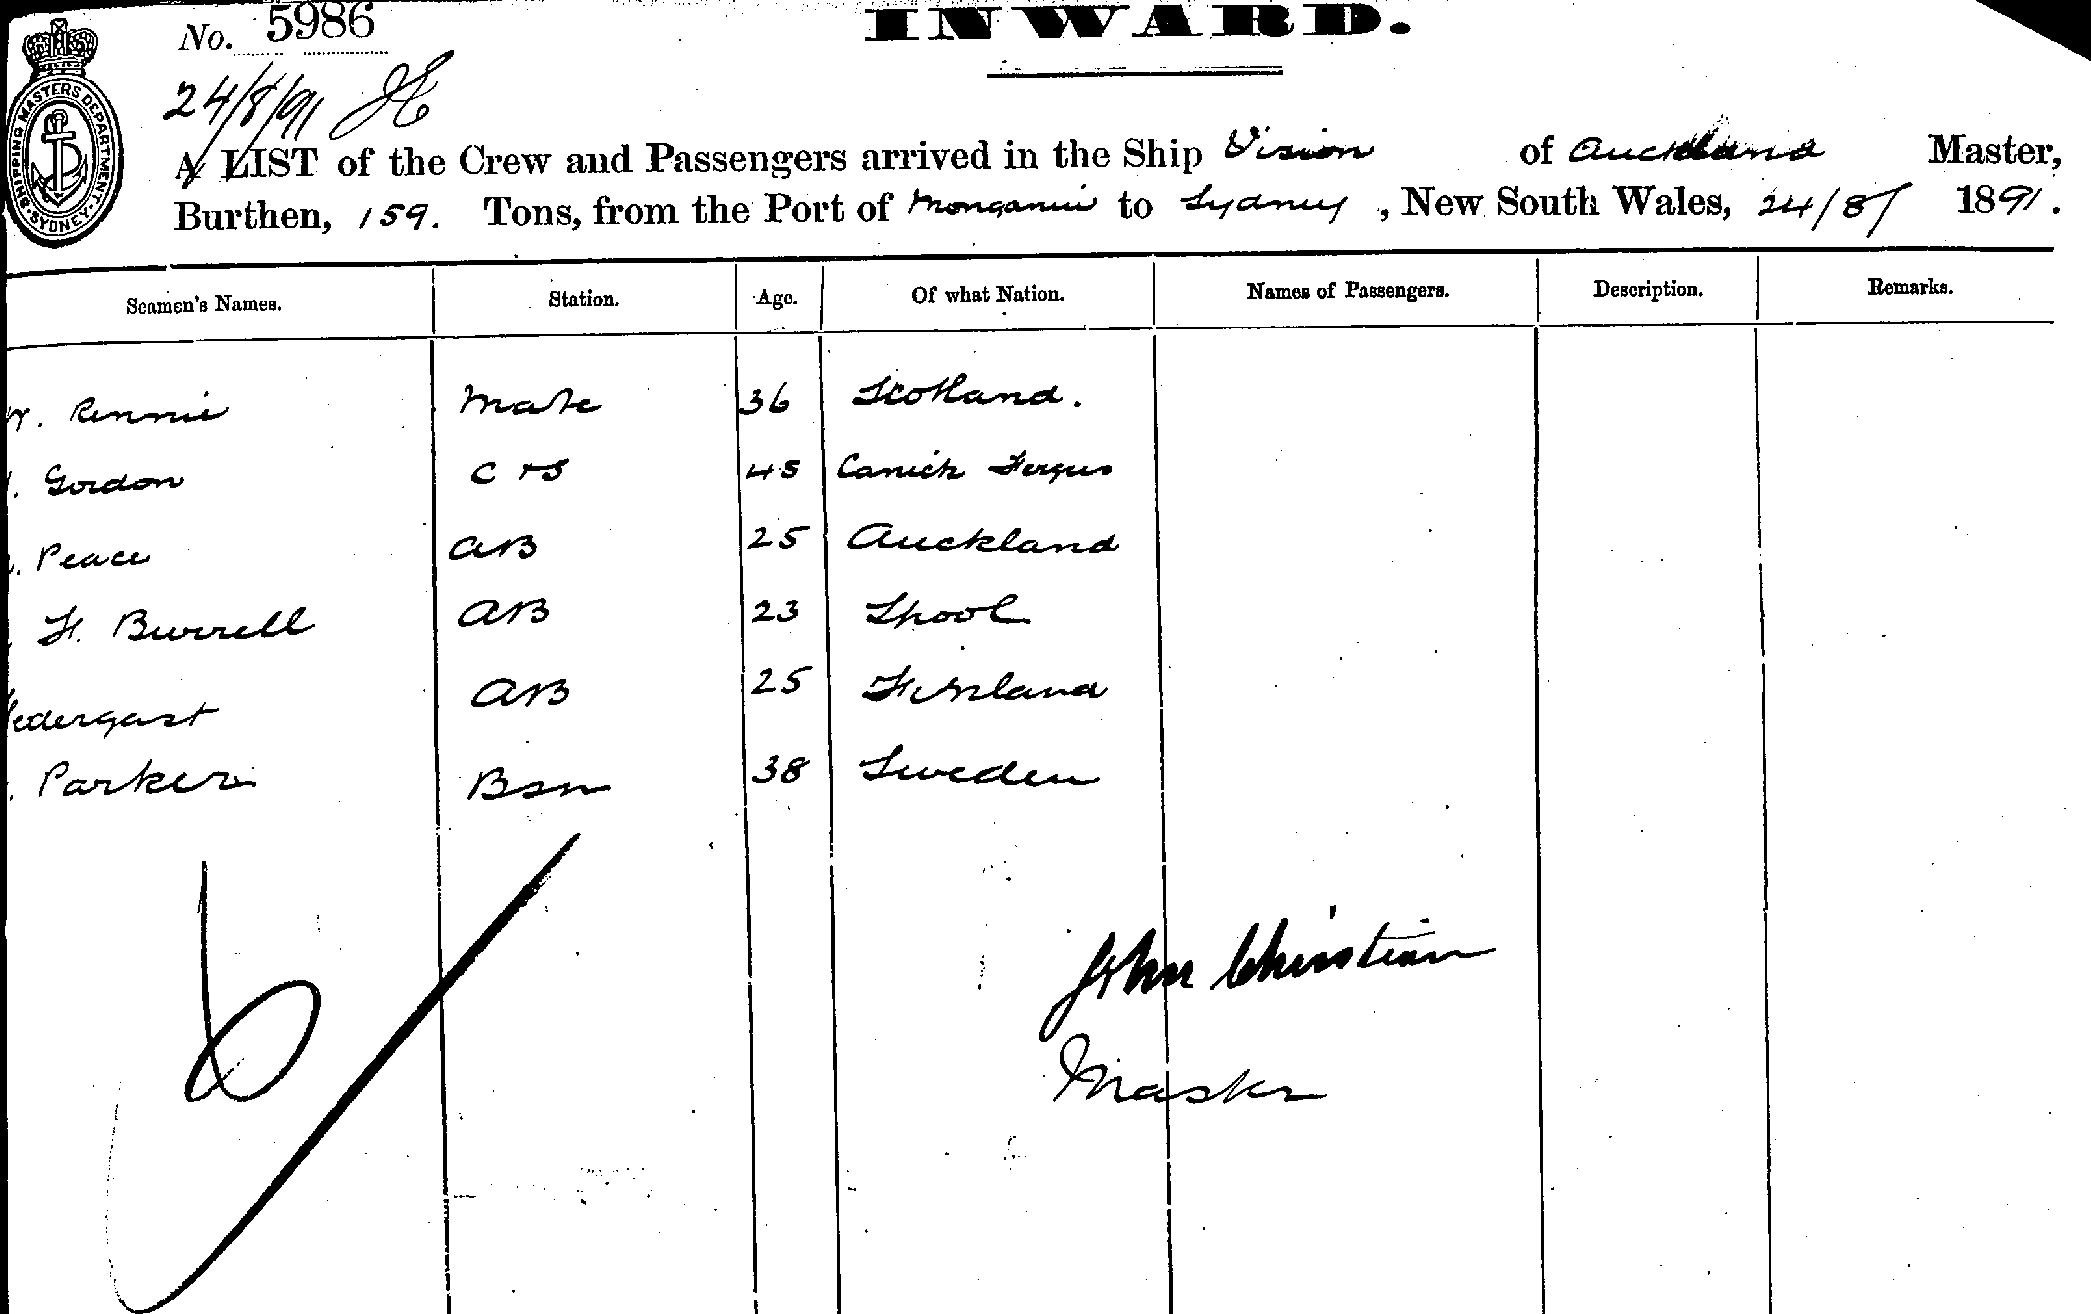 No. 5986
INWARD.
24/8/91
SHIPPING MASTERS DEPARTMENT SYDNEY
A LIST of the Crew and Passengers arrived in the Ship Vision of Auckland Master,
Burthen, 159. Tons, from the Port of to Sydney, New South Wales, 24/8/ 1891.
Seamen's Names. Station. Age. Of what Nation. Names of Passengers. Description. Remarks.
Rennie Mate 36 Scotland.
Gordon C &S 45 Carrick Fergus
Peace AB 25 Auckland
H. Burrell AB 23 Lpool
edergast AB 25 Finland
Parker Bsn 38 Sweden
6
John Christian
Master